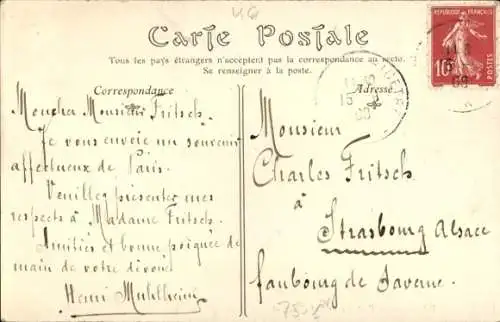 Carte Postale
Tous les pays étrangers n'acceptent pas la correspondance au recto.
Se renseigner à la poste.
Correspondance
Adresse
Mon cher Monsieur Fritsch.
Je vous envoie un souvenir
affectueux de Paris.
Veuillez présenter mes
respects à Madame Fritsch.
Amitiés et bonne poignée de
main de votre dévoué
Henri Muhlheim
Monsieur
Charles Fritsch
à
Strasbourg Alsace
faubourg de Saverne.
REPUBLIQUE FRANÇAISE
10
POSTES